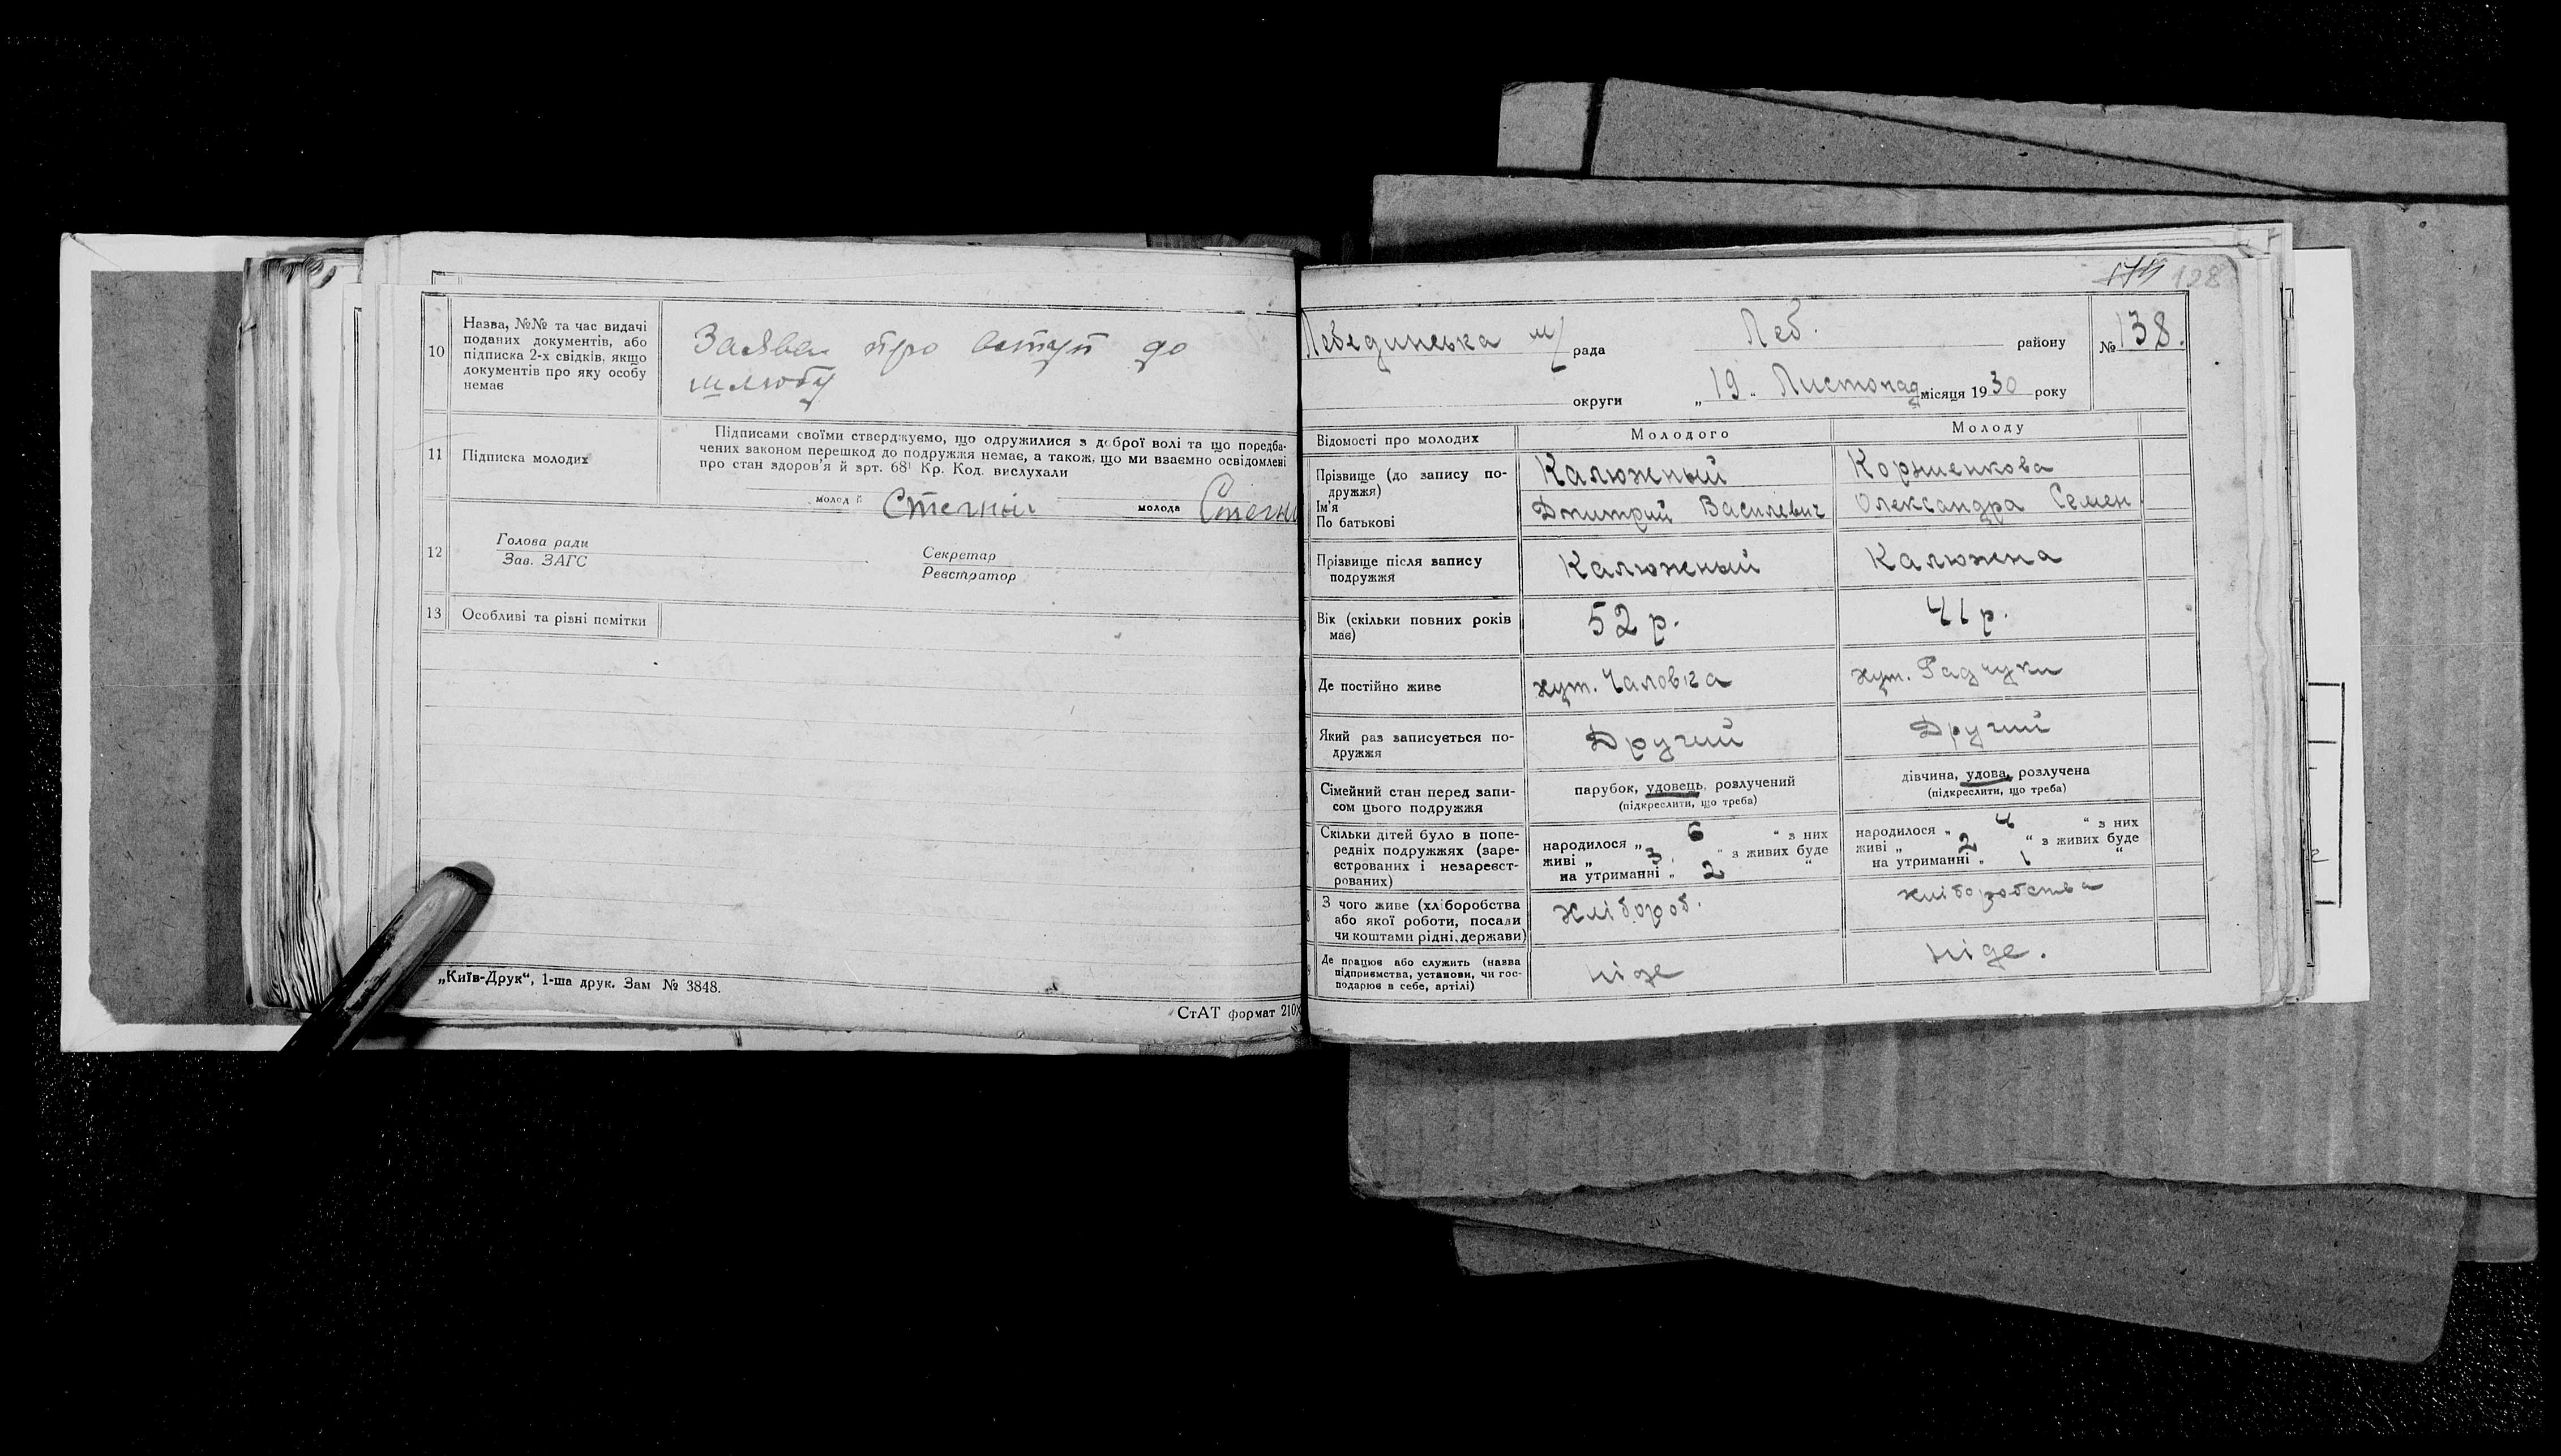 10
Назва, №№ та час видачі
поданих документів, або
підписка 2-х свідків, якщо
документів про яку особу
немає
Заява про вступ до
шлюбу
11
Підписка молодих
Підписами своїми стверджуємо, що одружилися з доброї волі та що поредба-
чених законом перешкод до подружжя немає, а також, що ми взаємно освідомлені
про стан здоров'я й арт. 68¹ Кр. Код. вислухали
молодий
молода
12
Голова ради
Зав. ЗАГС
Секретар
Реєстратор
13
Особливі та різні помітки
„Київ-Друк“, 1-ша друк. Зам № 3848.
СтАТ формат 210х
138
Лебединська м/ рада
Леб. району
№ 138.
округи
„19„ Листопад місяця 1930 року
Відомості про молодих
Молодого
Молоду
Прізвище (до запису по-
дружжя)
Ім'я
По батькові
Калюжный
Дмитрий Василевич
Коршенкова
Олександра Семен.
Прізвище після запису
подружжя
Калюжный
Калюжна
Вік (скільки повних років
має)
52 р.
41 р.
Де постійно живе
хут. Чаловіга
хут. Радчуки
Який раз записується по-
дружжя
Другий
Другий
Сімейний стан перед запи-
сом цього подружжя
парубок, удовець, розлучений
(підкреслити, що треба)
дівчина, удова, розлучена
(підкреслити, що треба)
Скільки дітей було в попе-
редніх подружжях (заре-
єстрованих і незареєст-
рованих)
народилося „ 6 “ з них
живі „ 3. “ з живих буде
на утриманні „ 2 “
народилося „ 4 “ з них
живі „ 2 “ з живих буде
на утриманні „ 1 “
З чого живе (хліборобства
або якої роботи, посади
чи коштами рідні, держави)
хлібороб.
хліборобства
Де працює або служить (назва
підприємства, установи, чи гос-
подарює в себе, артілі)
ніде
ніде.